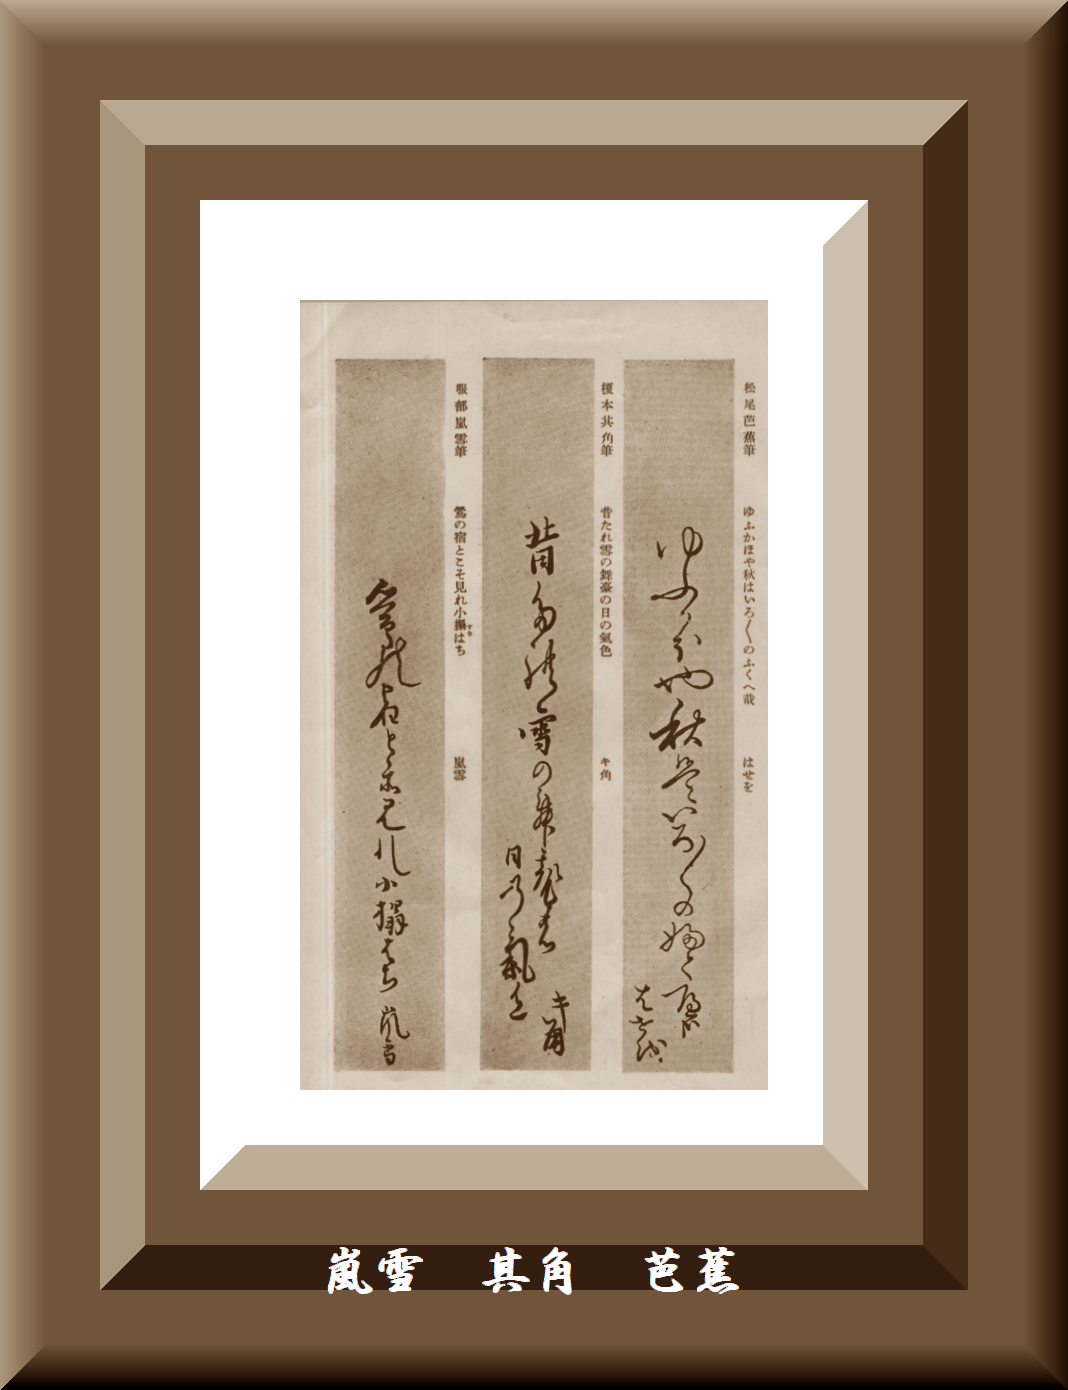 松尾芭蕉筆 ゆふかほや秋はいろ〱のふくへ哉 はせを
ゆふかほや
秋はいろ〱の
ふくへ哉
はせを
榎本其角筆 昔たれ雪の舞臺の日の氣色 キ角
昔たれ雪の舞臺の
日の氣色
キ角
服部嵐雪筆 鶯の宿とこそ見れ小摺はち 嵐雪
すり
鶯の宿とこそ見れ小摺はち
嵐雪
嵐雪 其角 芭蕉